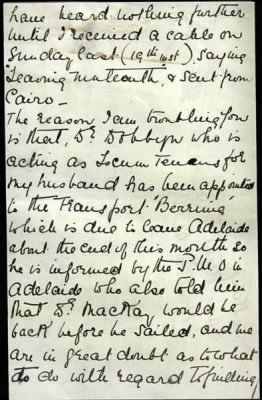 have heard nothing further
until I received a cable on
Sunday last (19th inst) saying
"Leaving nineteenth, & sent from
Cairo –
The reason I am troubling you
is that, Dr Dobbyn who is
acting as Locum Tenens for
my husband has been appointed
to the Transport "Berrima"
which is due to leave Adelaide
about the end of this month so
he is informed by the P.M.O in
Adelaide who also told him
that Dr MacKay would be
back before he sailed, and we
are in great doubt as to what
to do with regard to finding